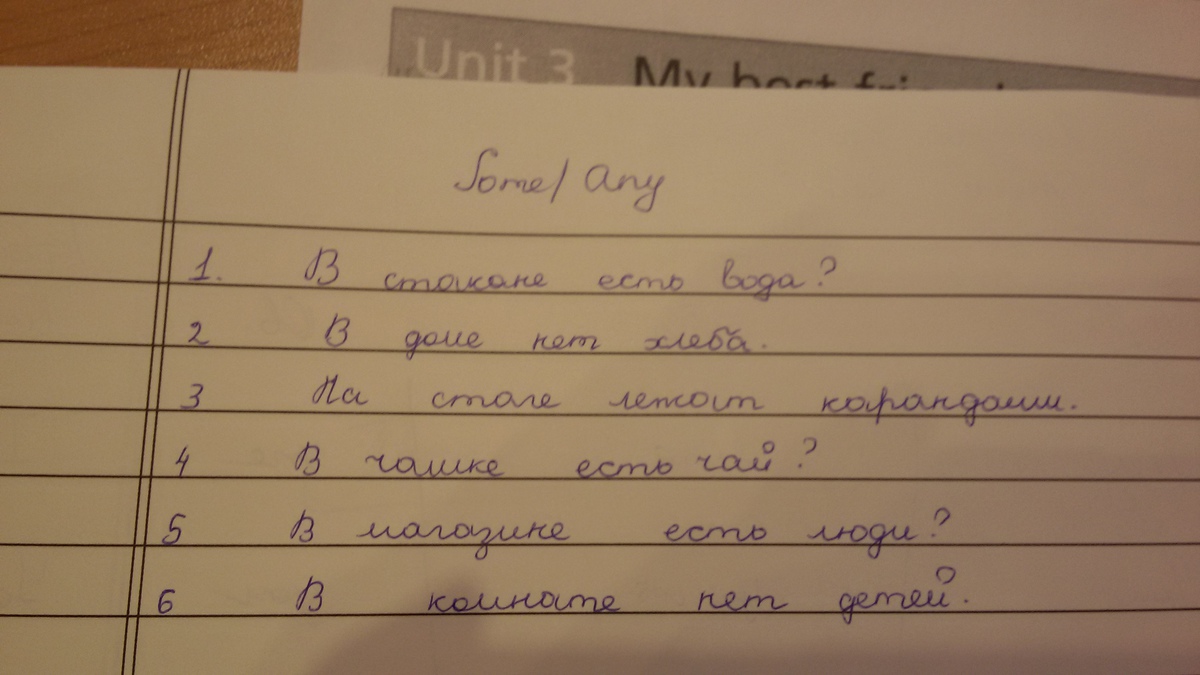 Unit 3 My best
Some/Any
1. В стакане есть вода?
2 В доме нет хлеба.
3 На столе лежат карандаши.
4 В чашке есть чай?
5 В магазине есть люди?
6 В комнате нет детей.